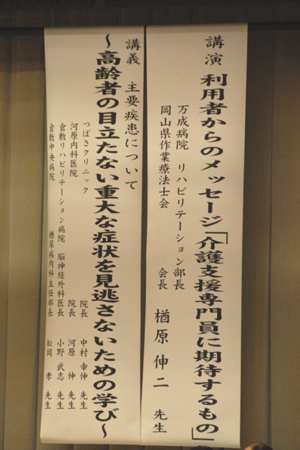 講演 利用者からのメッセージ「介護支援専門員に期待するもの」
万成病院 リハビリテーション部長
岡山県作業療法士会 会長 楢原 伸二 先生
講義 主要疾患について
～高齢者の目立たない重大な症状を見逃さないための学び～
つばさクリニック 院長 中村 幸伸 先生
河原内科医院 院長 河原 伸 先生
倉敷リハビリテーション病院 脳神経外科医長 小野 武志 先生
倉敷中央病院 糖尿病内科主任部長 松岡 孝 先生